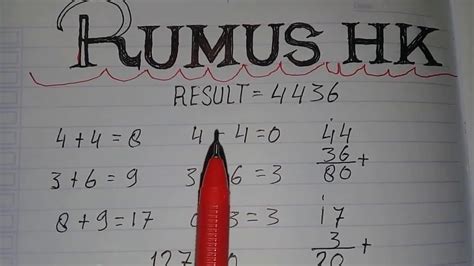 RUMUS HK
RESULT = 4436
4 + 4 = 8
3 + 6 = 9
8 + 9 = 17
4 - 4 = 0
3 6 = 3
3 = 3
44
36 +
80
17
3 +
20
127